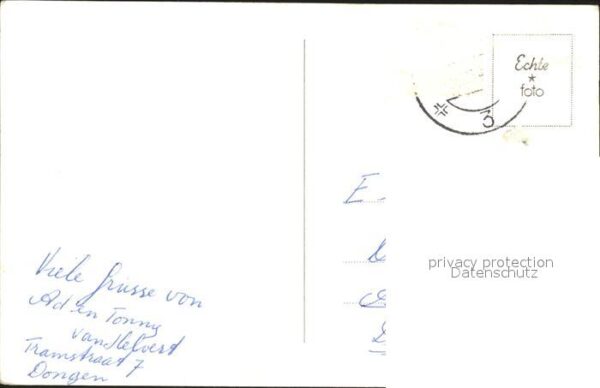 Echte
foto
3
E
privacy protection
Datenschutz
D
Viele Grüsse von
Ad en Tonny
van Helvert
Tramstraat 7
Dongen